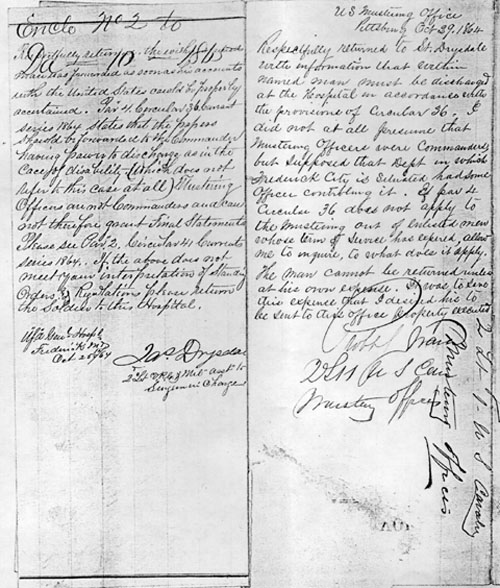 Enclo No 2 to
Respectfully returned, the within
was forwarded as soon as his accounts
with the United States could be properly
ascertained. Par 4 Circular 36 Current
series 1864 States that the papers
should be forwarded to the Commander
having power to discharge as in the
Case of disability (Which does not
refer to this case at all) Mustering
Officers are not Commanders and can
not therefore grant Final Statements
Please see Par 2. Circular 41 Current
series 1864. If the above does not
meet your interpretations of Standing
Orders & Regulations please return
the Soldier to this Hospital.
USA Genl Hospl
Frederick Md
Oct 26/64
Jas Drysdale
2d Lt VRC & Mil Asst to
Surgeon in Charge
US Mustering Office
Pittsburg Oct 29, 1864
Respectfully returned to Lt. Drysdale
with information that within
named man must be discharged
at the Hospital in accordance with
the provisions of Circular 36, I
did not at all presume that
Mustering Officers were Commanders
but supposed that Dept in which
Frederick City is situated had some
Officer controlling it. If par 4
Circular 36 does not apply to
the Mustering out of Enlisted men
whose term of service has expired, allow
me to inquire, to what does it apply.
The man cannot be returned unless
at his own expense. It was to save
this expense that I desired his to
be sent to this office properly executed
2d Lt U S Cav
Mustering Officer
2d Lt U S Cavalry
Mustering Officer